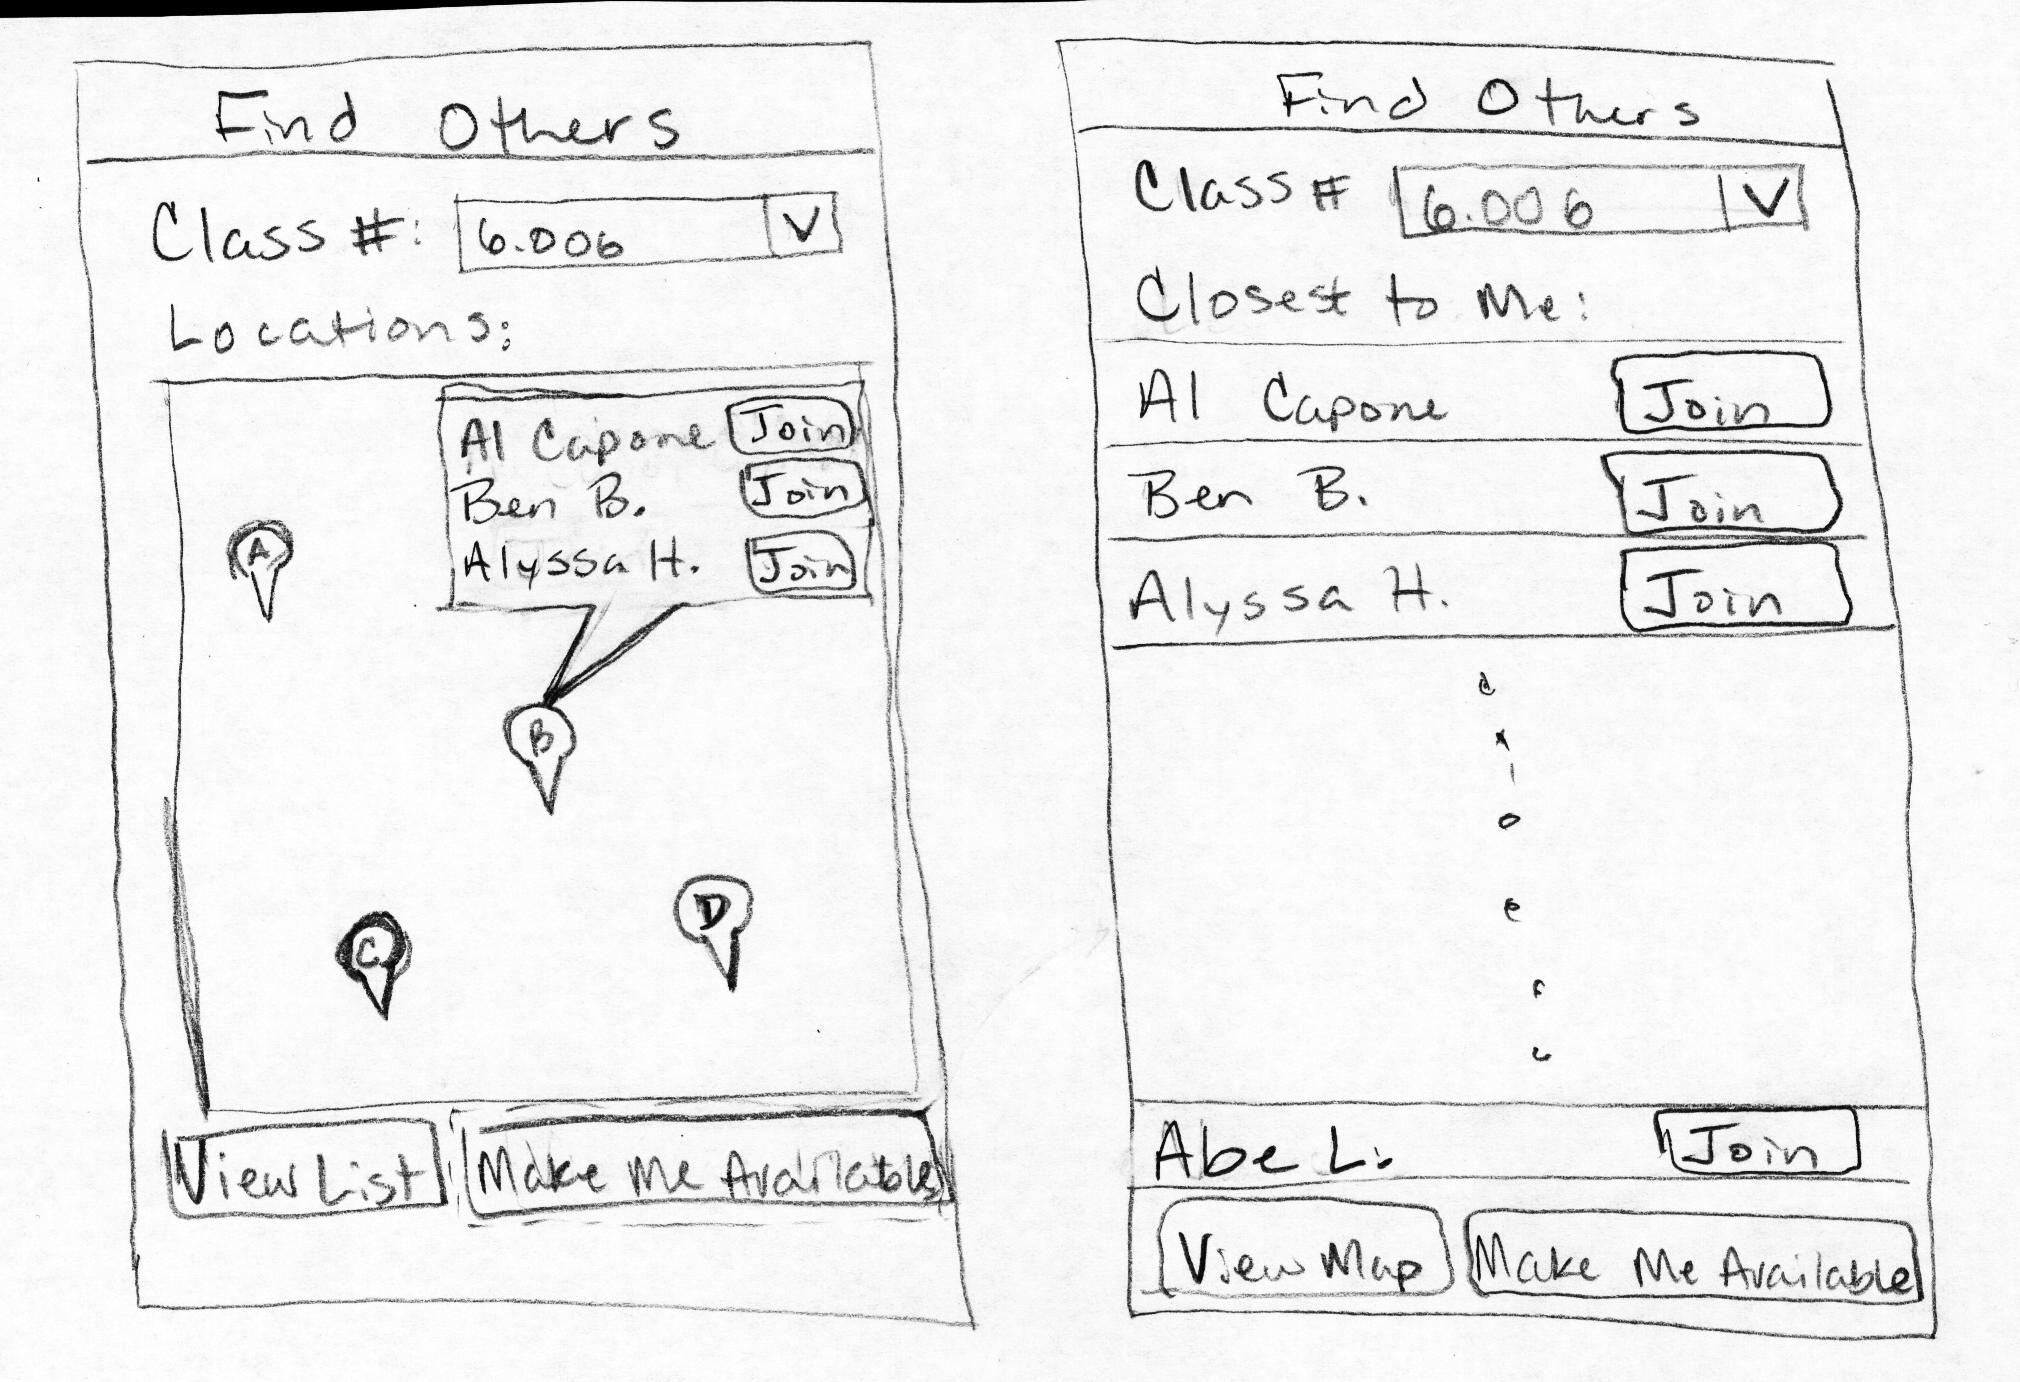 Find Others
Class #: 6.006 V
Locations:
Al Capone Join
Ben B. Join
Alyssa H. Join
A
B
C
D
View List Make Me Available
Find Others
Class # 6.006 V
Closest to Me:
Al Capone Join
Ben B. Join
Alyssa H. Join
Abe L. Join
View Map Make Me Available